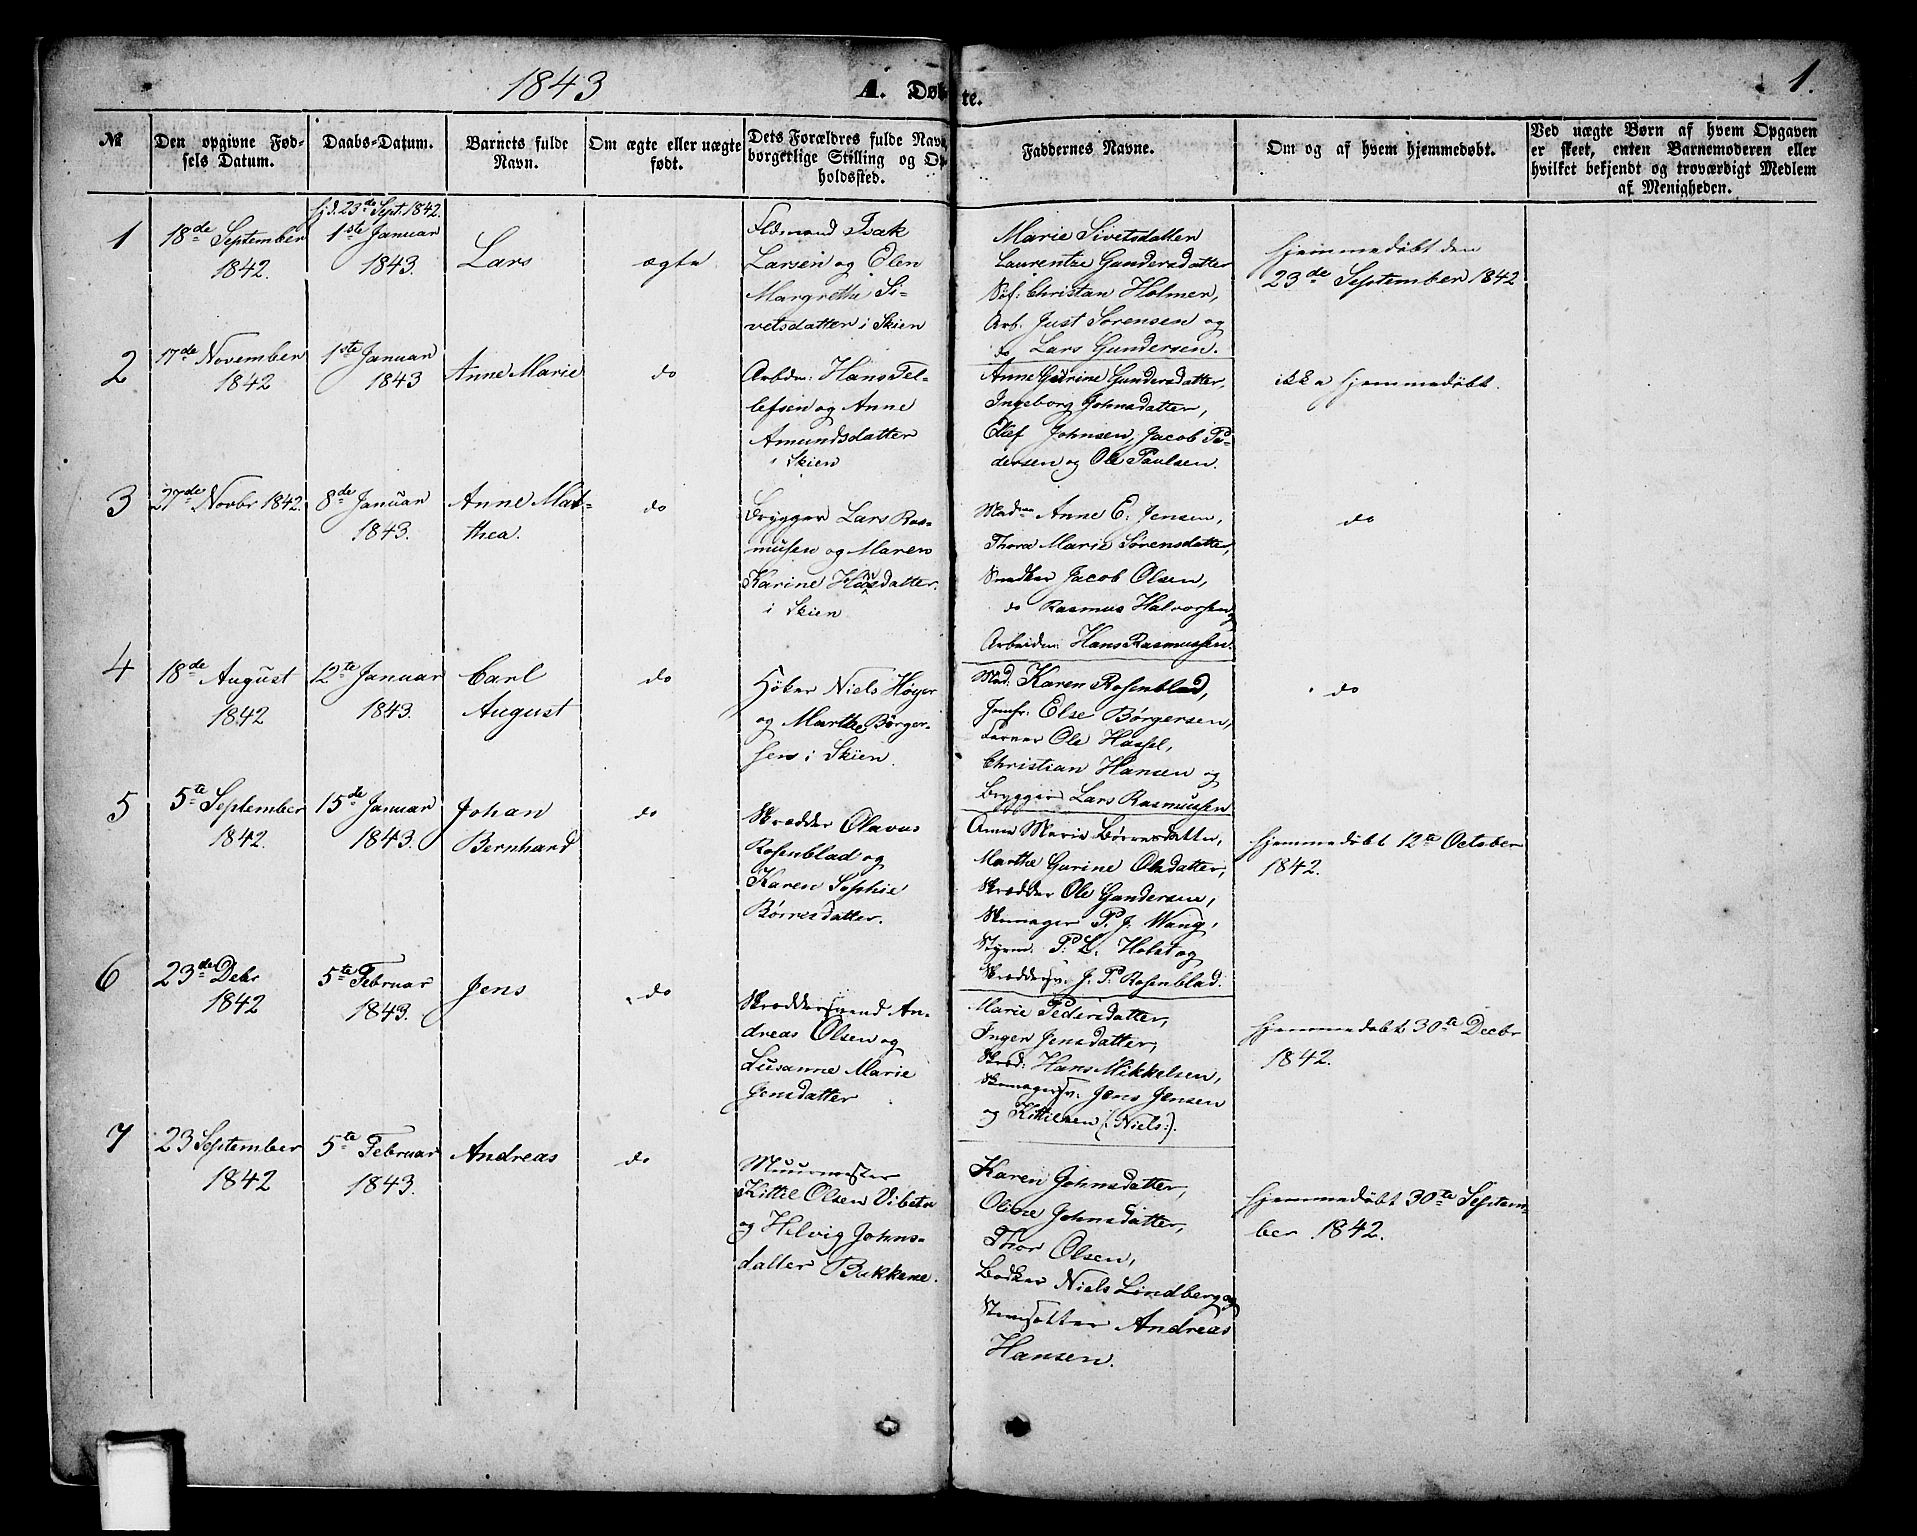 1843
A. Døbte.
1.
№
Den opgivne Fød-
sels Datum.
Daabs-Datum.
Barnets fulde
Navn.
Om ægte eller uægte
født.
Dets Forældres fulde Navn,
borgetlige Stilling og Op-
holdssted.
Faddernes Navne.
Om og af hvem hjemmedøbt.
Ved uægte Børn af hvem Opgaven
er skeet, enten Barnemoderen eller
hvilket bekjendt og troværdigt Medlem
af Menigheden.
1
18de September
1842.
hjd. 23de Sept. 1842.
1ste Januar
1843.
Lars
ægte
Isak
Larsen og Elen
Margrethe Si-
vetsdatter i Skien
Marie Sivetsdatter
Laurentze Gundersdatter
Søf: Christian Holmer,
Arb. Just Sørensen og
do Lars Gundersen.
hjemmedøbt den
23de September 1842
2
17de November
1842
1ste Januar
1843
Anne Marie
do
Arbdr: Hans Tel-
lefsen og Anne
Amundsdatter
i Skien
Anne Gurine Gundersdatter,
Ingeborg Johnsdatter,
Johnsen, Jacob Pe-
dersen og Ole Paulsen.
ikke hjemmedøbt.
3
27de Novbr 1842.
8de Januar
1843.
Anne Mat-
thea.
do
Brygger Lars Ras-
musen og Maren
Karine Hansdatter.
i Skien
Madm Anne E. Jensen,
Thora Marie Sørensdatter,
Snedker Jacob Olsen,
do Rasmus Halvorsen og
Arbeider: Hans Rasmussen.
do
4
18de August
1842
12te Januar
1843.
Carl
August
do
Høker Niels Høyer
og Marthe Børger-
sen i Skien.
Mad: Karen Rosenblad,
Jomfr: Else Børgersen,
Farver Ole Hassel,
Christian Hansen og
Brygger Lars Rasmussen
do
5
5te September
1842.
15de Januar
1843.
Johan
Bernhard
do
Skrædder Olavus
Rosenblad og
Karen Sophie
Børresdatter.
Anne Marie Børresdatter,
Marthe Gurine Olsdatter,
Skrædder Ole Gundersen,
Skomager P. J. Wang,
Styrm. P. L. Holst og
Skræddersv. J. P. Rosenblad.
hjemmedøbt 12te October
1842.
6
23de Debr
1842
5te Februar
1843.
Jens
do
Skræddersvend An-
dreas Olsen og
Susanne Marie
Jensdatter
Marie Pedersdatter,
Inger Jensdatter,
Skræd: Hans Mikkelsen,
Skomagersv. Jens Jensen
og Kittilsen (: Niels :).
hjemmedøbt 30te Decbr
1842.
7
23 September
1842
5te Februar
1843.
Andreas
do
Muurmester
Kittil Olsen Vibeto
og Helvig Johns-
datter Bakkene.
Karen Johnsdatter,
Oline Johnsdatter,
Thor Olsen,
Bødker Niels Lindberg og
Andreas
Hansen.
hjemmedøbt 30te Septem-
ber 1842.